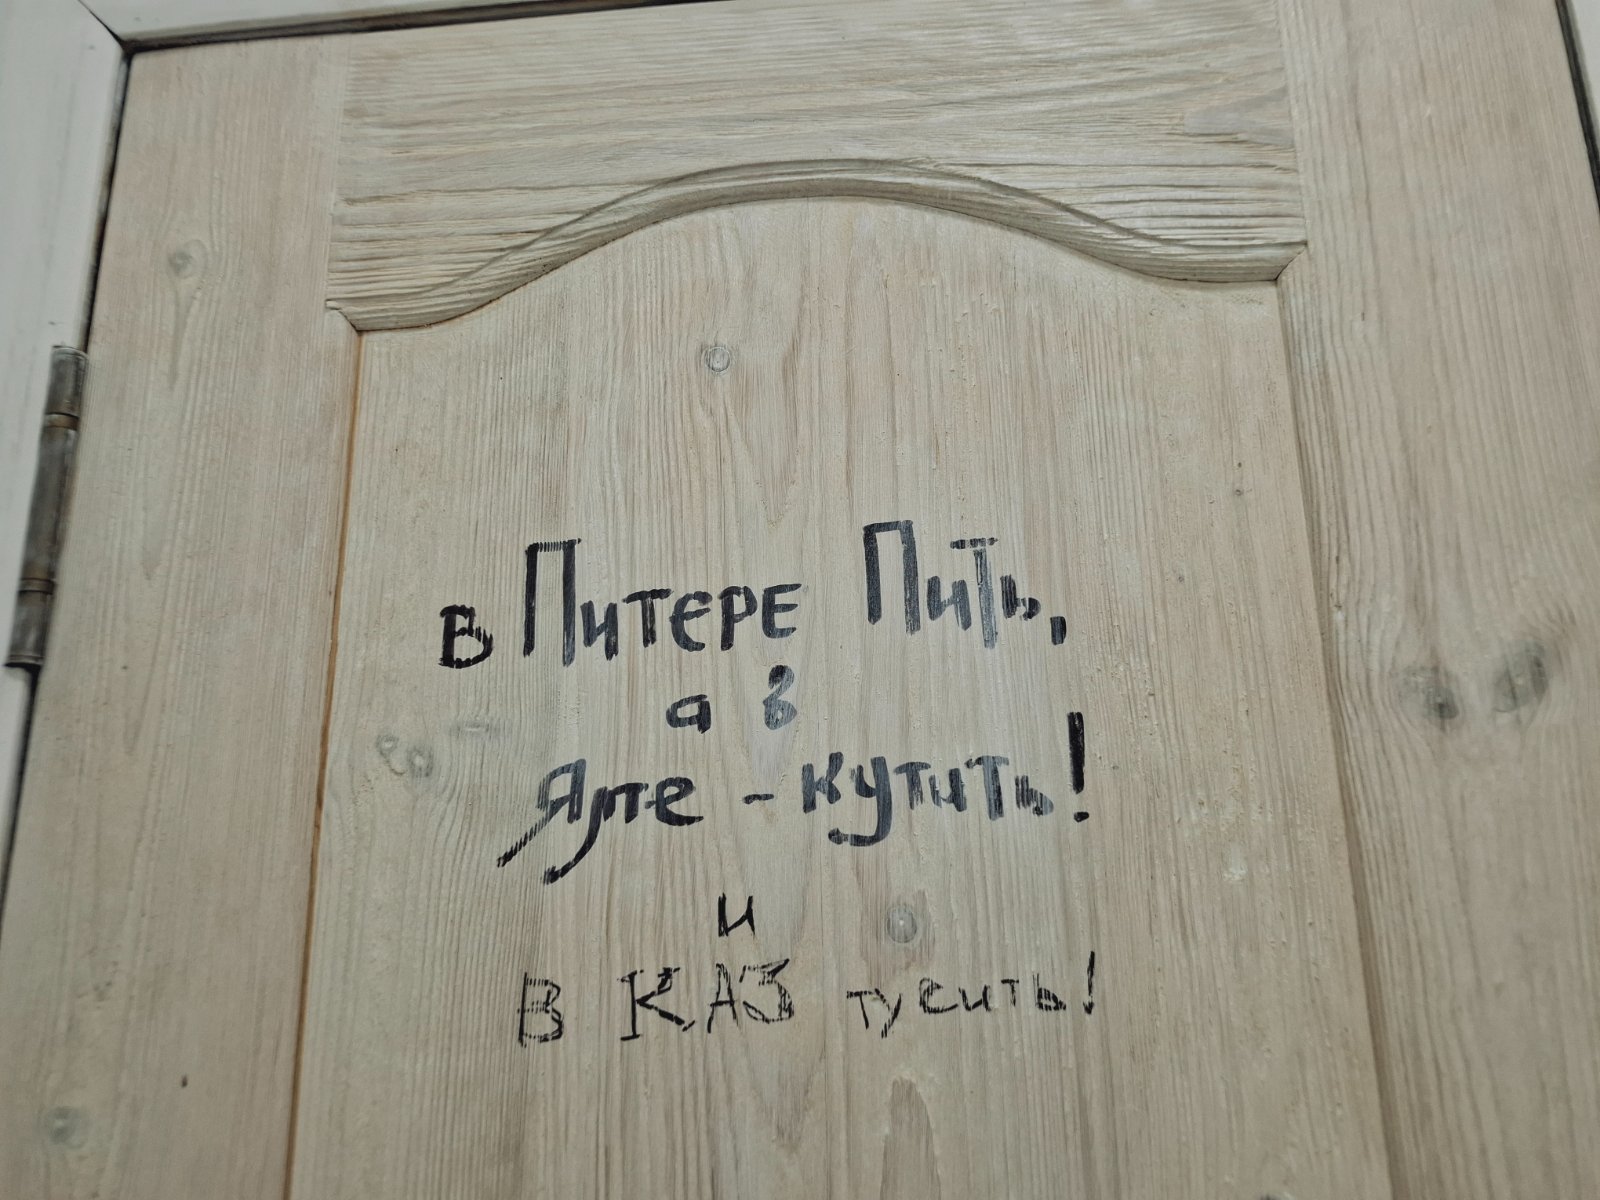 в Питере Пить,
а в
Яле - кутить!
и
В КАЗ тусить!